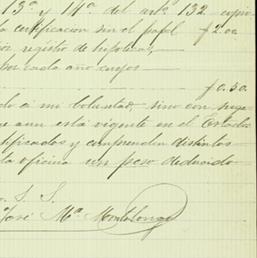 13ª y 14ª del artº 132
la certificacion sin el papel $2.00
registro de hipotecas,
por cada año cuyos
$0.50
á mi voluntad, sino con
que aun está vigente en el Estado
tificados y comprenden distintos
la oficina un peso deducido
S. S.
José Mª Montalongo